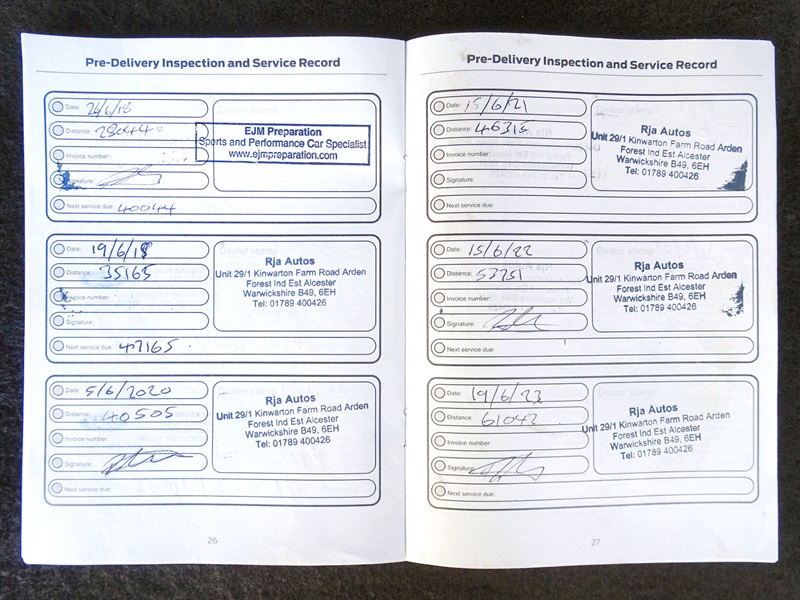 Pre-Delivery Inspection and Service Record
Date: 26/6/18
Distance: 28044
Invoice number:
Signature:
Next service due: 40044
Dealer stamp
EJM Preparation
Sports and Performance Car Specialist
www.ejmpreparation.com
Date: 19/6/19
Distance: 35165
Invoice number:
Signature:
Next service due: 47165
Dealer stamp
Rja Autos
Unit 29/1 Kinwarton Farm Road Arden
Forest Ind Est Alcester
Warwickshire B49, 6EH
Tel: 01789 400426
Date: 5/6/2020
Distance: 40505
Invoice number:
Signature:
Next service due:
Dealer stamp
Rja Autos
Unit 29/1 Kinwarton Farm Road Arden
Forest Ind Est Alcester
Warwickshire B49, 6EH
Tel: 01789 400426
26
Pre-Delivery Inspection and Service Record
Date: 15/6/21
Distance: 46315
Invoice number:
Signature:
Next service due:
Dealer stamp
Rja Autos
Unit 29/1 Kinwarton Farm Road Arden
Forest Ind Est Alcester
Warwickshire B49, 6EH
Tel: 01789 400426
Date: 15/6/22
Distance: 53751
Invoice number:
Signature:
Next service due:
Dealer stamp
Rja Autos
Unit 29/1 Kinwarton Farm Road Arden
Forest Ind Est Alcester
Warwickshire B49, 6EH
Tel: 01789 400426
Date: 19/6/23
Distance: 61042
Invoice number:
Signature:
Next service due:
Dealer stamp
Rja Autos
Unit 29/1 Kinwarton Farm Road Arden
Forest Ind Est Alcester
Warwickshire B49, 6EH
Tel: 01789 400426
27